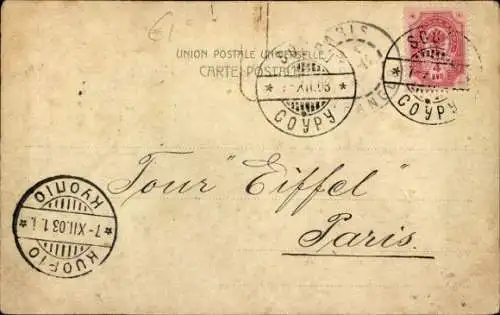 UNION POSTALE UNIVERSELLE
CARTE POSTALE
PARIS
7-XII.03
СОУРУ
СОУРУ
Tour "Eiffel"
Paris.
КУОПІО
7-XII.03 1 i.
KUOPIO